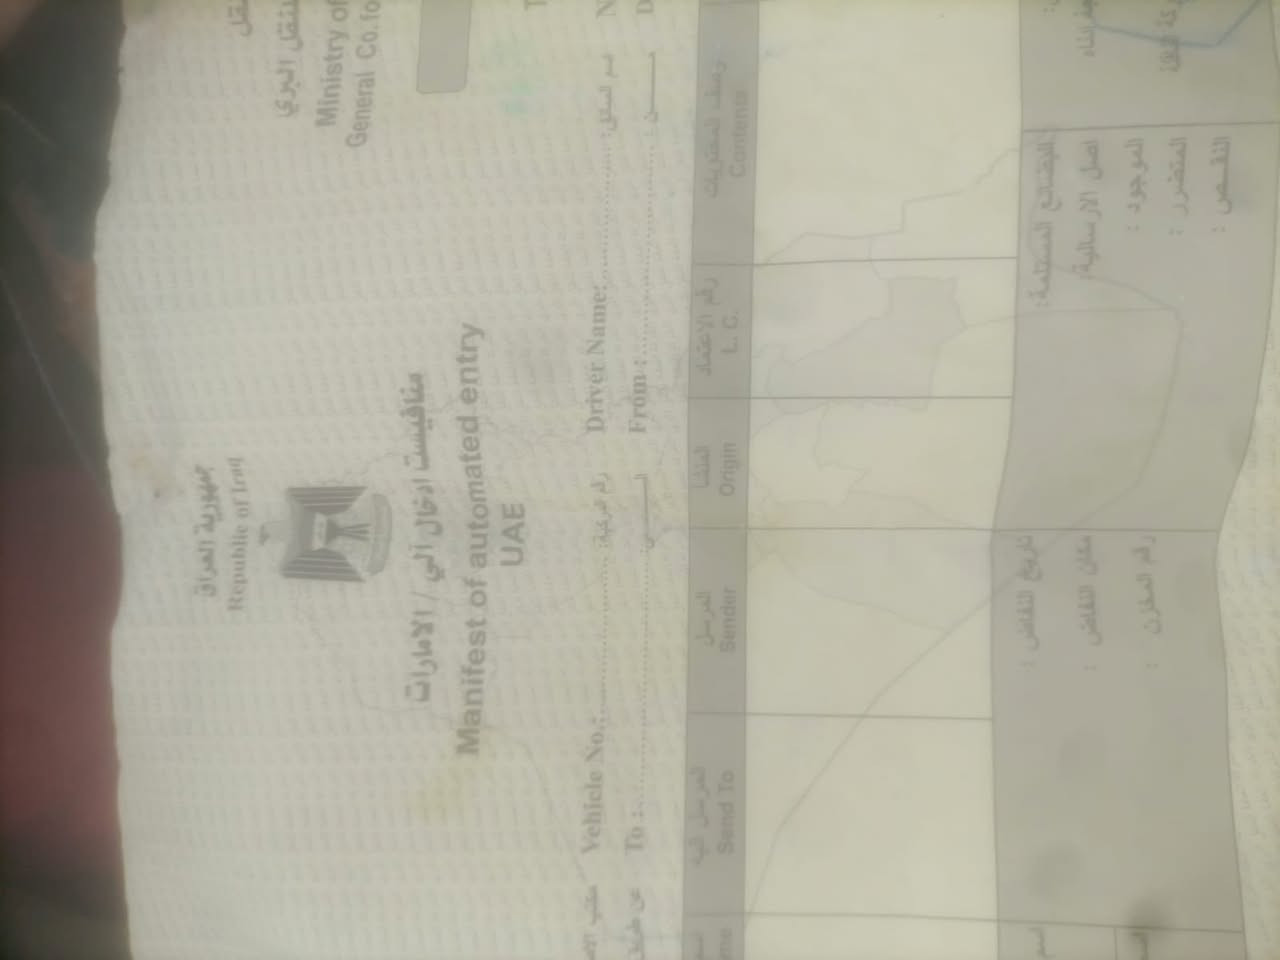 جمهورية العراق
Republic of Iraq
النقل البري
Ministry of
General Co. fo
منافيست ادخال الي / الامارات
Manifest of automated entry
UAE
Vehicle No.: رقم المركبة: Driver Name: اسم السائق:
To : الى: From : من :
المرسل اليه المرسل المنشأ رقم الاعتماد وصف المحتويات
Send To Sender Origin L. C. Contents
تاريخ التفاض : البضائع المستلمة:
مكان التفاض : اصل الارسالية:
رقم المخزن : الموجود :
المتضرر :
النقص :